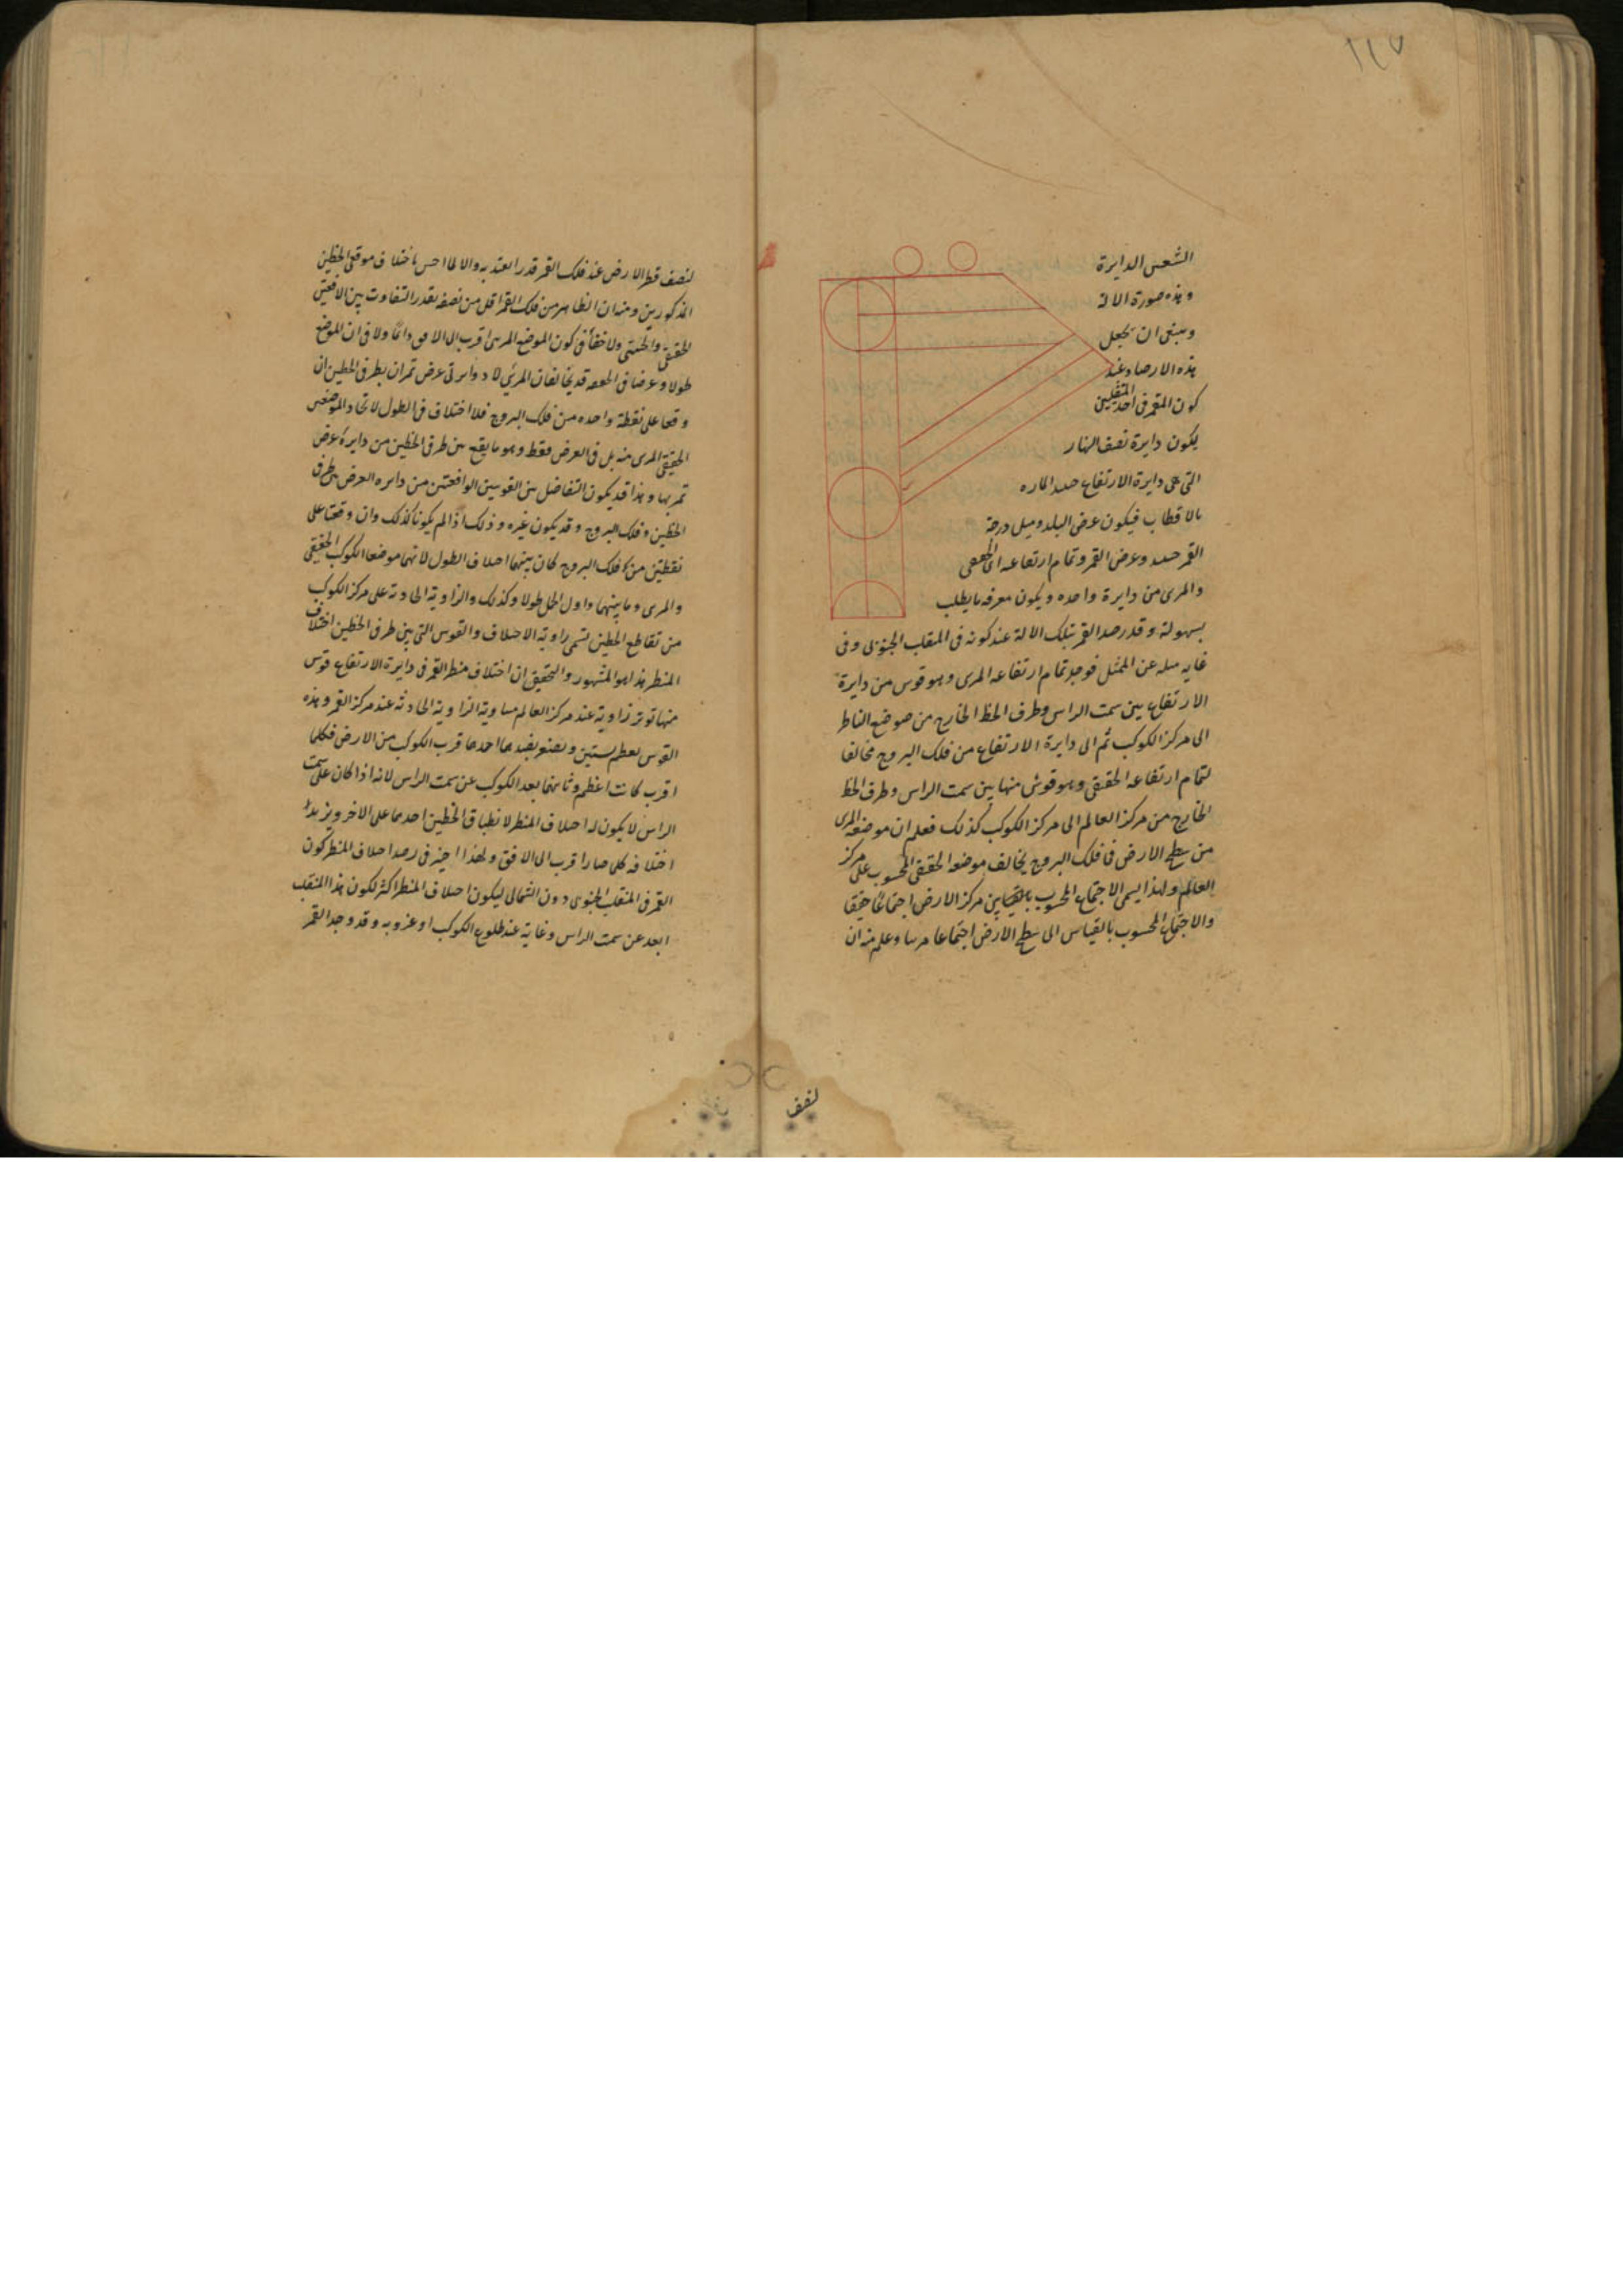 ١١٧
الشعس الدايرة
وهذه صورة الالة
وينبغى ان يجعل
هذه الارصاد عند
كون القمر فى احد المنقلبين
يكون دايرة نصف النهار
التى هى دايرة الارتفاع حينئذ الماره
بالاقطاب فيكون عرض البلد وميل درجة
القمر حينئذ وعرض القمر وتمام ارتفاعه الحقيقى
والمرى من دايرة واحده ويكون معرفه ما يطلب
بسهولة وقد رصد القمر بتلك الالة عند كونه فى المنقلب الجنوبى وفى
غايه ميله عن الممثل فوجد تمام ارتفاعه المرى وهو قوس من دايرة
الارتفاع بين سمت الراس وطرف الخط الخارج من موضع الناظر
الى مركز الكوكب ثم الى دايرة الارتفاع من فلك البروج مخالفا
لتمام ارتفاعه الحقيقى وهو قوس منها بين سمت الراس وطرف الخط
الخارج من مركز العالم الى مركز الكوكب كذلك فعلم ان موضعه المرى
من سطح الارض فى فلك البروج يخالف موضعه الحقيقى المحسوب على مركز
العالم ولهذا يسمى الاجتماع المحسوب بالقياس مركز الارض اجتماعا حقيقيا
والاجتماع المحسوب بالقياس الى سطح الارض اجتماعا مرييا وعلم منه ان
لنصف
لنصف قطر الارض عند فلك القمر قدرا يعتد به والا لما احس باختلاف موقعى الخطين
المذكورين ومنه ان الظاهر من فلك القمر اقل من نصفه بقدر التفاوت بين الافقين
الحقيقى والحسى ولا خفأ فى كون الموضع المرى اقرب الى الافق دائما ولا فى ان الموضع
طولا وعرضا فى الحقيقه قد يخالفان المرئى لا دوايرتى عرض تمران بطرفى الخطين ان
وقعا على نقطة واحده من فلك البروج فلا اختلاف فى الطول لاتحاد الموضعين
الحقيقى المرى منه بل فى العرض فقط وهو ما يقع بين طرفى الخطين من دايرة عرض
تمر بها وهذا قد يكون التفاضل بين القوسين الواقعتين من دايره العرض بين طرفى
الخطين وفلك البروج وقد يكون غيره وذلك اذا لم يكونا كذلك وان وقعتا على
نقطتين من فلك البروج كان بينهما اختلاف الطول لانهما موضعا الكوكب الحقيقى
والمرى وما بينهما واول الحمل طولا وكذلك والزاوية الحادثة على مركز الكوكب
من تقاطع الخطين تسمى زاوية الاختلاف والقوس التى بين طرفى الخطين اختلاف
المنظر هذا هو المشهور والتحقيق ان اختلاف منظر القمر فى دايرة الارتفاع قوس
منها توتر زاوية عند مركز العالم مساوية الزاوية الحادثة عند مركز القمر وهذه
القوس يعظم بسببين ويصغر بضدهما احدهما قرب الكوكب من الارض فكلما
اقرب كانت اعظم وثانيهما بعد الكوكب عن سمت الراس لانه اذا كان على سمت
الراس لا يكون له اختلاف المنظر لانطباق الخطين احدهما على الاخر ويزيد
اختلافه كلما صار اقرب الى الافق ولهذا اختير فى رصد اختلاف المنظر كون
القمر فى المنقلب الجنوبى دون الشمالى ليكون اختلاف المنظر اكثر لكون هذا المنقلب
ابعد عن سمت الراس وغايته عند طلوع الكوكب او غروبه وقد وجد القمر